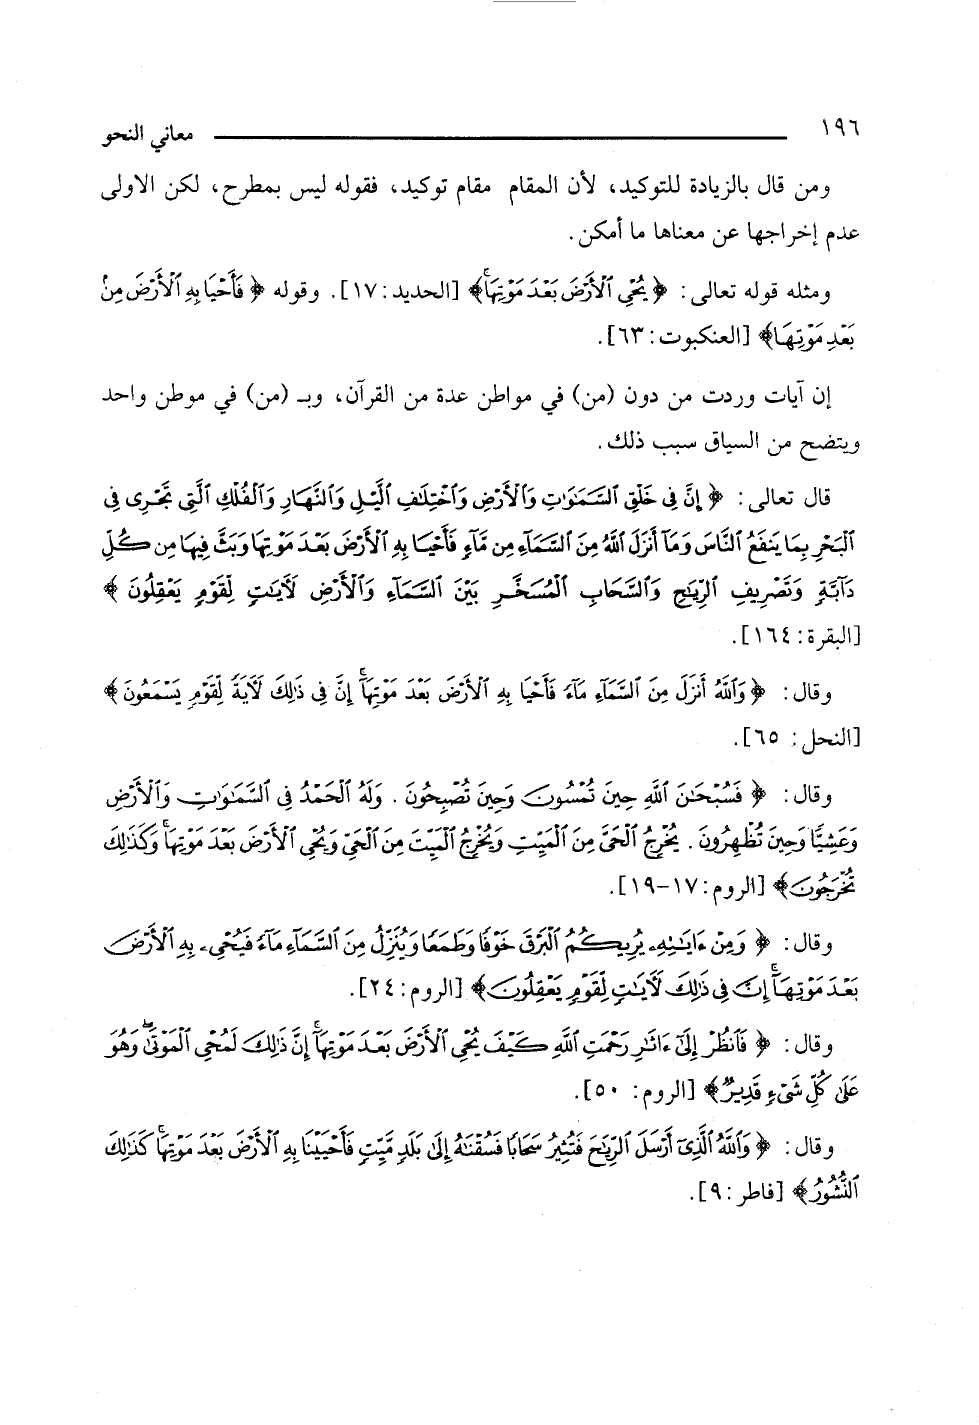 ١٩٦ معاني النحو
ومن قال بالزيادة للتوكيد، لأن المقام مقام توكيد، فقوله ليس بمطرح، لكن الاولى
عدم إخراجها عن معناها ما أمكن.
ومثله قوله تعالى: ﴿يُحْيِ ٱلْأَرْضَ بَعْدَ مَوْتِهَاۚ﴾ [الحديد:١٧]. وقوله ﴿فَأَحْيَا بِهِ ٱلْأَرْضَ مِنۢ
بَعْدِ مَوْتِهَا﴾ [العنكبوت:٦٣].
إن آيات وردت من دون (من) في مواطن عدة من القرآن، وبـ (من) في موطن واحد
ويتضح من السياق سبب ذلك.
قال تعالى: ﴿إِنَّ فِى خَلْقِ ٱلسَّمَٰوَٰتِ وَٱلْأَرْضِ وَٱخْتِلَٰفِ ٱلَّيْلِ وَٱلنَّهَارِ وَٱلْفُلْكِ ٱلَّتِى تَجْرِى فِى
ٱلْبَحْرِ بِمَا يَنفَعُ ٱلنَّاسَ وَمَآ أَنزَلَ ٱللَّهُ مِنَ ٱلسَّمَآءِ مِن مَّآءٍ فَأَحْيَا بِهِ ٱلْأَرْضَ بَعْدَ مَوْتِهَا وَبَثَّ فِيهَا مِن كُلِّ
دَآبَّةٍ وَتَصْرِيفِ ٱلرِّيَٰحِ وَٱلسَّحَابِ ٱلْمُسَخَّرِ بَيْنَ ٱلسَّمَآءِ وَٱلْأَرْضِ لَءَايَٰتٍ لِّقَوْمٍ يَعْقِلُونَ﴾
[البقرة:١٦٤].
وقال: ﴿وَٱللَّهُ أَنزَلَ مِنَ ٱلسَّمَآءِ مَآءً فَأَحْيَا بِهِ ٱلْأَرْضَ بَعْدَ مَوْتِهَآۚ إِنَّ فِى ذَٰلِكَ لَءَايَةً لِّقَوْمٍ يَسْمَعُونَ﴾
[النحل: ٦٥].
وقال: ﴿فَسُبْحَٰنَ ٱللَّهِ حِينَ تُمْسُونَ وَحِينَ تُصْبِحُونَ . وَلَهُ ٱلْحَمْدُ فِى ٱلسَّمَٰوَٰتِ وَٱلْأَرْضِ
وَعَشِيًّا وَحِينَ تُظْهِرُونَ . يُخْرِجُ ٱلْحَىَّ مِنَ ٱلْمَيِّتِ وَيُخْرِجُ ٱلْمَيِّتَ مِنَ ٱلْحَىِّ وَيُحْيِ ٱلْأَرْضَ بَعْدَ مَوْتِهَاۚ وَكَذَٰلِكَ
تُخْرَجُونَ﴾ [الروم:١٧-١٩].
وقال: ﴿وَمِنْ ءَايَٰتِهِۦ يُرِيكُمُ ٱلْبَرْقَ خَوْفًا وَطَمَعًا وَيُنَزِّلُ مِنَ ٱلسَّمَآءِ مَآءً فَيُحْيِۦ بِهِ ٱلْأَرْضَ
بَعْدَ مَوْتِهَآۚ إِنَّ فِى ذَٰلِكَ لَءَايَٰتٍ لِّقَوْمٍ يَعْقِلُونَ﴾ [الروم:٢٤].
وقال: ﴿فَٱنظُرْ إِلَىٰٓ ءَاثَٰرِ رَحْمَتِ ٱللَّهِ كَيْفَ يُحْيِ ٱلْأَرْضَ بَعْدَ مَوْتِهَآۚ إِنَّ ذَٰلِكَ لَمُحْيِ ٱلْمَوْتَىٰۖ وَهُوَ
عَلَىٰ كُلِّ شَىْءٍ قَدِيرٌ﴾ [الروم: ٥٠].
وقال: ﴿وَٱللَّهُ ٱلَّذِىٓ أَرْسَلَ ٱلرِّيَٰحَ فَتُثِيرُ سَحَابًا فَسُقْنَٰهُ إِلَىٰ بَلَدٍ مَّيِّتٍ فَأَحْيَيْنَا بِهِ ٱلْأَرْضَ بَعْدَ مَوْتِهَاۚ كَذَٰلِكَ
ٱلنُّشُورُ﴾ [فاطر:٩].